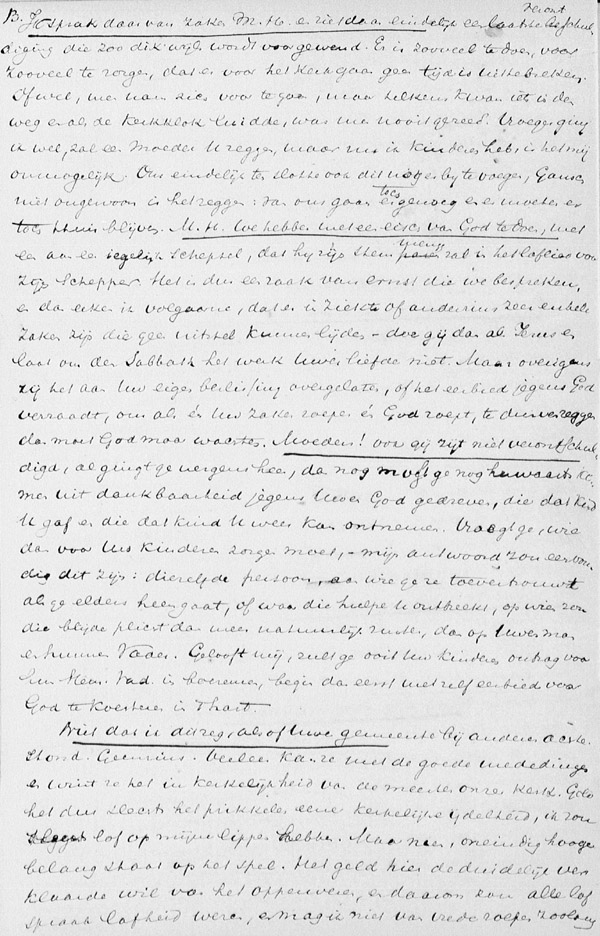 B. Ik sprak daar van zaken M. H. en ziet daar eindelijk een laatste
diging die zoo dikwijls wordt voorgewend. Er is zooveel te doen, voor
zooveel te zorgen, dat er voor het kerkgaan geen tijd is
Ofwel, men nam zich voor te gaan, maar telkens kwam iets in den
weg en als de kerkklok luidde, was men nooit gereed. Vroeger ging
ik wel, zal een Moeder U zeggen, maar nu ik kinderen heb, is het mij
onmogelijk. Om eindelijk ten slotte ook dit nog er by te voegen, Gansch
niet ongewoon is het zeggen: van ons gaan er genoeg en er moeten er
toch thuis blijven. M. H. we hebben met een eisch van God te doen, met
een aan een iegelijk schepsel, dat hy zijn stem zal in het loflied van
zijn Schepper. Het is dus een zaak van ernst die we bespreken,
en dan erken ik volgaarne, dat er in ziekte of anderzins zeer enkele
zaken zijn die geen uitstel kunnen lijden - doe gij dan als Jezus en
laat om den Sabbath het werk Uwer liefde niet. Maar overigens
zij het aan Uw eigen beslissing overgelaten, of het eerbied jegens God
verraadt, om als én Uw zaken roepen én God roept, te durven zeggen
dan moet God maar wachten. Moeders! ook gij zijt niet verontschul-
digd, al gingt ge nergens heen, dan nog moest ge nog herwaarts ko-
men uit dankbaarheid jegens Uwen God gedreven, die dat kind
U gaf en die dat kind U weer kan ontnemen. Vraagt ge, wie
dan voor Uw kinderen zorgen moet, - mijn antwoord zou eenvou-
dig dit zijn: dienzelfde persoon, aan wie ge ze toevertrouwt
als ge elders heen gaat, of waar die hulpe U ontbreekt, op wien zou
die blijde plicht dan meer natuurlijk rusten, dan op Uwen man
en hunnen Vader. Gelooft mij, zult ge ooit Uw kinderen ontzag voor
hun Hem. Vad. in boezemen, begin dan eerst met zelf eerbied voor
God te koesteren in 't hart.
Niet dat ik dit zeg, alsof Uwe gemeente bij anderen achter
stond. Geenszins. Veeleer kan ze met de goede mededingen
en wint ze het in kerkelijkheid van de meeste onzer kerk. Gold
het dus slechts het prikkelen eener kerkelijke ijdelheid, ik zou
slechts lof op mijn lippen hebben. Maar neen, oneindig hooger
belang staat op het spel. Het geld hier de duidelijk ver
klaarde wil van het opperwezen, en daarom zou alle lof
spraak lafheid weren, en mag ik niet van vrede roepen zoolang